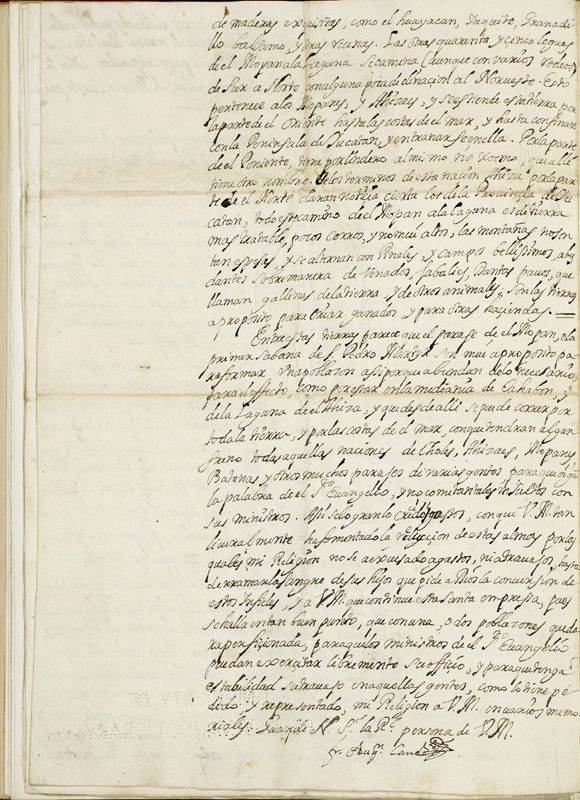 de maderas exquisitas, como el huayacan, Granadi
llo balsamo, y otras resinas. Las otras quarenta, y cinco leguas
de el Mopan a la Laguna se camina (aunque con varios rodeos)
de Sur a Norte con alguna poca declinacion al Norueste. Esto
pertenece a los Mopanes, y Ahizaes, y se estiende esta tierra por
la parte de el Oriente hasta las costas de el mar, y hasta confinar
con la Peninsula de Yucatan, y entranarse en ella. Por la parte
de el Poniente, tiene por lindero al mismo rio Xocmo, que alli
tiene otro nombre. De los terminos de esta nacion Ahiza por la par
te de el Norte daran noticia cierta los de la Provincia de Yu
catan, todo este camino de el Mopan a la Laguna es de tierra
mas tratable, pocos cerros, y no mui altos, las montañas no son
tan espesas, y se alternan con Pinales, y campos bellissimos, abu
dantes sobre manera de Venados, Jabalies, Dantas, pavos, que
llaman gallinas de la tierra, y de otros animales, son las tierras
a proposito para criar ganados, y para otras haciendas.
Entre estas tierras parece que el paraje de el Mopan, o la
primer sabana de S. Pedro Martyr son mui a proposito pa
ra formar una poblazon assi porque abundan de lo necessario
para el effecto, como por estar en la mediania de Cahabon, y
de la Laguna de el Ahiza, y que desde alli se puede correr por
toda la tierra, y por las costas de el mar, con que tendran algun
freno todas aquellas naciones de Choles, Ahizaes, Mopanes,
y otros muchos parajes de varias gentes para que oygan
la palabra de el Sto. Evangelio, y no cometan tales insultos con
sus ministros. Assi se lograran los gastos, con que V. M. tan
liveralmente ha fomentado la reduccion de estas almas por las
quales mi Religion no se a excusado a gastos, ni a travajos, hasta
derramar la sangre de sus hijos que pide a Dios la conversion de
estos Infieles, y a V. M. que continue esta santa empressa, pues
se halla en tan buen punto, que con una, o dos poblazones queda
ra perficionada, para que los ministros de el Sto. Evangelio
puedan exercitar libremente su officio, y para que tenga
estabilidad su travajo en aquellas gentes, como lo tiene pe
dido, y representado, mi Religion a V. M. en varios memo
riales. Guarde N. S. la Rl. persona de V. M.
fr. Augn. Cano